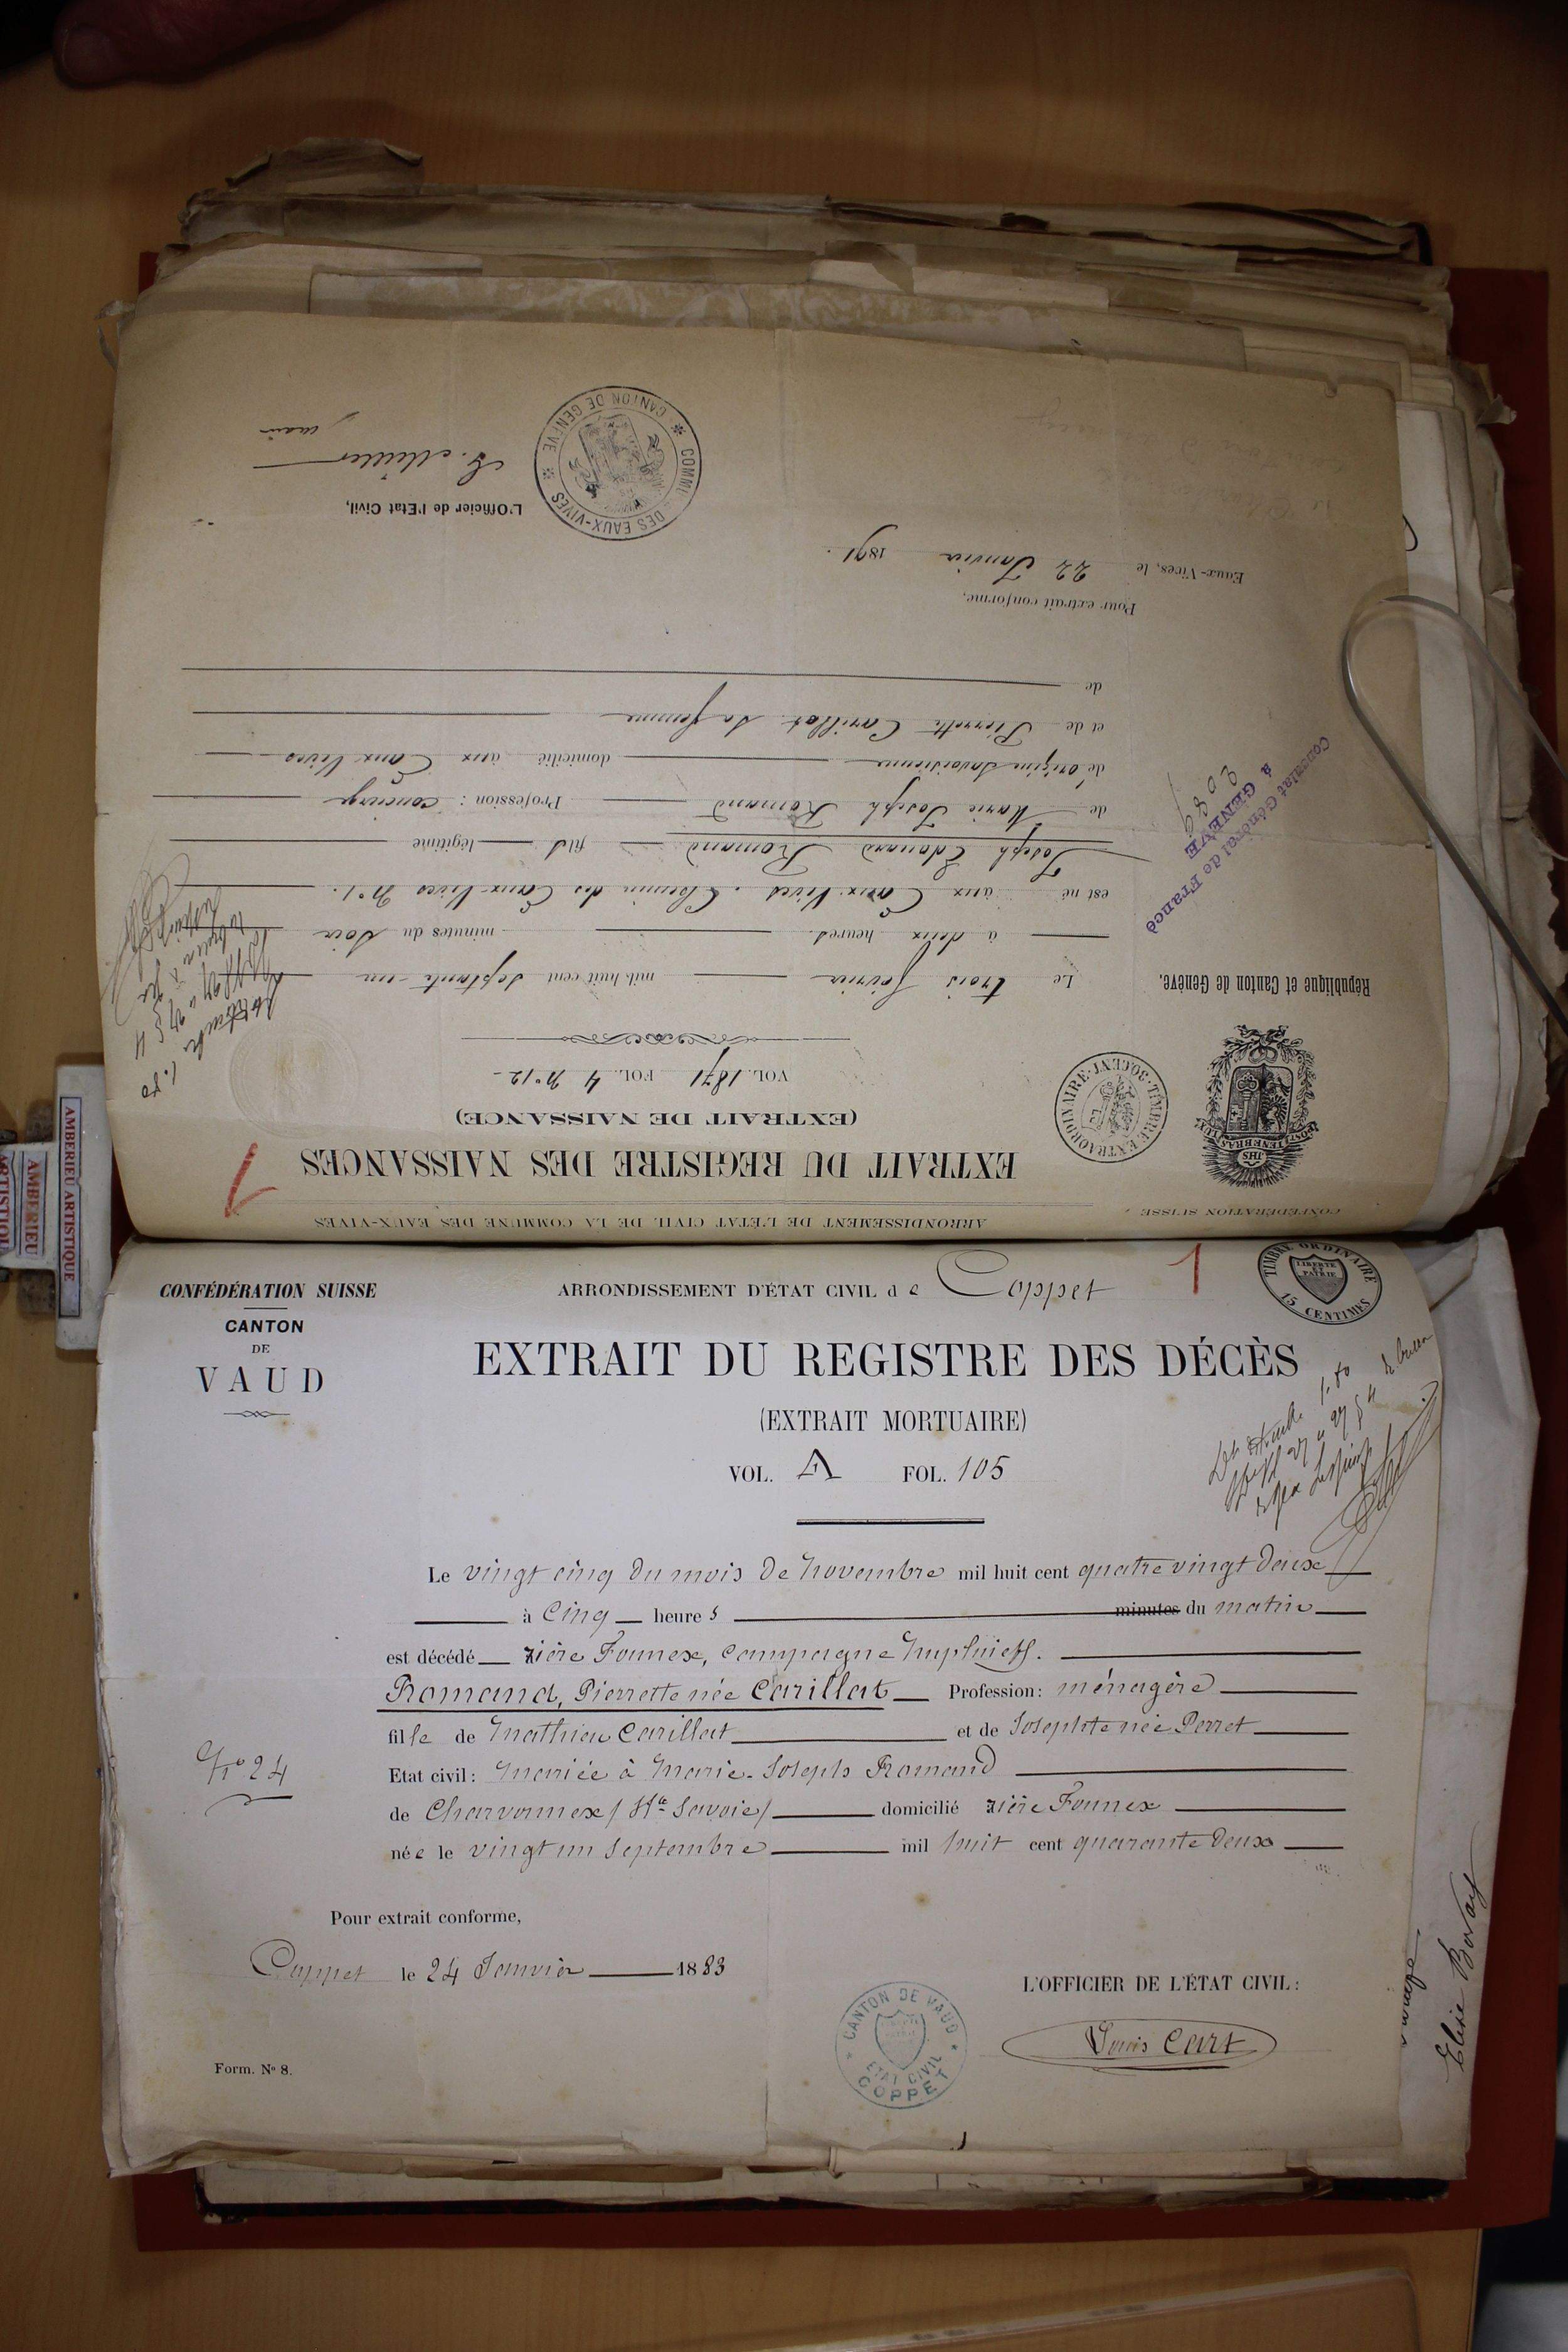 CONFÉDÉRATION SUISSE
ARRONDISSEMENT DE L'ÉTAT CIVIL DE LA COMMUNE DES EAUX-VIVES
EXTRAIT DU REGISTRE DES NAISSANCES
(EXTRAIT DE NAISSANCE)
VOL. 1871 FOL. 4 Nº 12
POST TENEBRAS LUX
IHS
TIMBRE EXTRAORDINAIRE
République et Canton de Genève.
Le trois février mil huit cent septante-un
à deux heures minutes du soir
est né aux Eaux-Vives, Chemin des Eaux-Vives Nº 1.
Joseph Edouard Romand fils légitime
de Marie Joseph Romand Profession : concierge
de origine Savoisienne domicilié aux Eaux-Vives
et de Pierrette Carillat sa femme
de
Consulat Général de France
à
GENÈVE
Pour extrait conforme,
Eaux-Vives, le 22 Janvier 1891.
L'Officier de l'Etat Civil,
maire
COMM. DES EAUX-VIVES
CANTON DE GENÈVE
AMBERIEU ARTISTIQUE
AMBERIEU
CONFÉDÉRATION SUISSE
CANTON
DE
VAUD
ARRONDISSEMENT D'ÉTAT CIVIL de Coppet
1
TIMBRE ORDINAIRE
LIBERTÉ ET PATRIE
15 CENTIMES
EXTRAIT DU REGISTRE DES DÉCÈS
(EXTRAIT MORTUAIRE)
VOL. A FOL. 105
Le vingt cinq du mois de Novembre mil huit cent quatre vingt deux
à Cinq heures minutes du matin
est décédé rière Founex, campagne
Romand, Pierrette née Carillat Profession: ménagère
fille de Mathieu Carillat et de Josephte née Perret
Etat civil: Mariée à Marie-Joseph Romand
Nº 24
de Charvonnex / Hte Savoie / domicilié rière Founex
née le vingt un Septembre mil huit cent quarante deux
Pour extrait conforme,
Coppet le 24 Janvier 1883
L'OFFICIER DE L'ÉTAT CIVIL:
Louis Cart
CANTON DE VAUD
ÉTAT CIVIL
COPPET
Form. Nº 8.